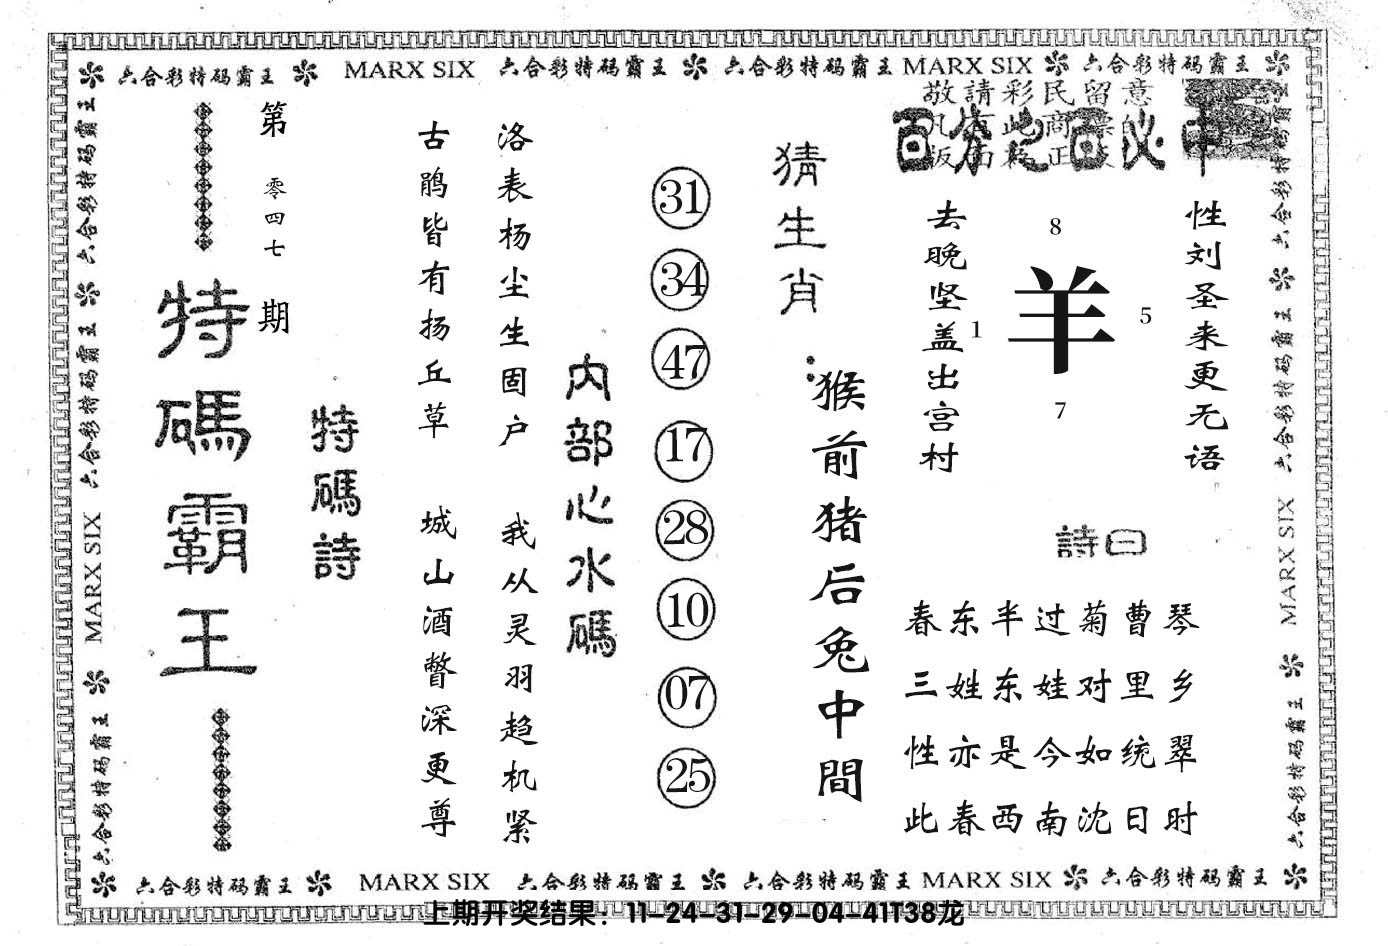 六合彩特码霸王 MARX SIX 六合彩特码霸王 六合彩特码霸王 MARX SIX 六合彩特码霸王
六合彩特码霸王 六合彩特码霸王 MARX SIX 六合彩特码霸王
六合彩特码霸王 六合彩特码霸王 MARX SIX 六合彩特码霸王
第零四七期
特碼霸王
特碼詩
古鹃皆有扬丘草 城山酒瞥深更尊
洛表杨尘生固户 我从灵羽趋机紧
内部心水碼
31
34
47
17
28
10
07
25
猜生肖:
猴前猪后兔中間
敬請彩民留意
去晚坚盖出宫村
8
1
羊
5
7
性刘圣来更无语
詩曰
春东半过菊曹琴
三姓东娃对里乡
性亦是今如统翠
此春西南沈日时
六合彩特码霸王 MARX SIX 六合彩特码霸王 六合彩特码霸王 MARX SIX 六合彩特码霸王
上期开奖结果：11-24-31-29-04-41T38龙